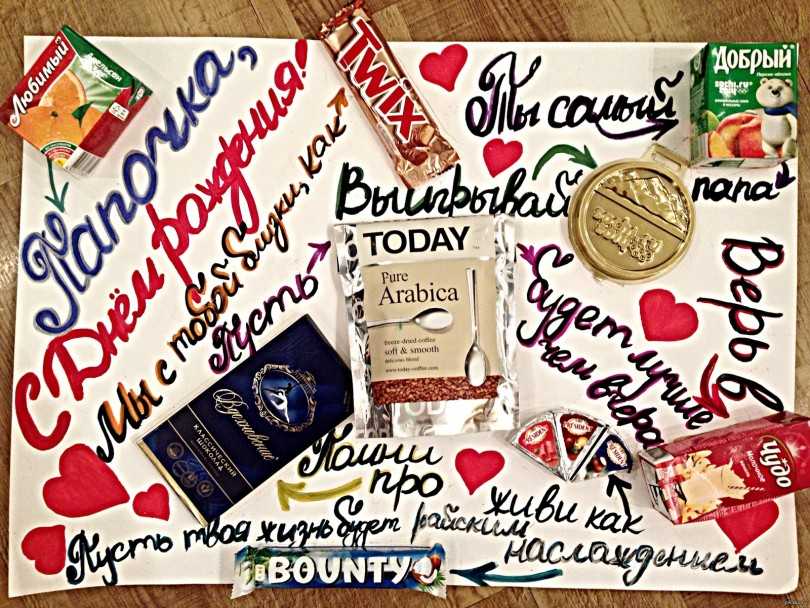 Любимый
Апельсин
Папочка,
С Днём рождения!
Мы с тобой близки, как
TWIX
Ты самый
Добрый
sochi.ru
папа
Выигрывай
Верь в
Чудо
Молочное
Пусть
TODAY
Pure
Arabica
freeze-dried coffee
soft & smooth
delicious blend
www.today-coffee.com
TODAY
будет лучше
чем вчера
Вдохновение
КЛАССИЧЕСКИЙ
ШОКОЛАД
Помни
про
живи как
наслаждением
Пусть твоя жизнь будет райским
BOUNTY